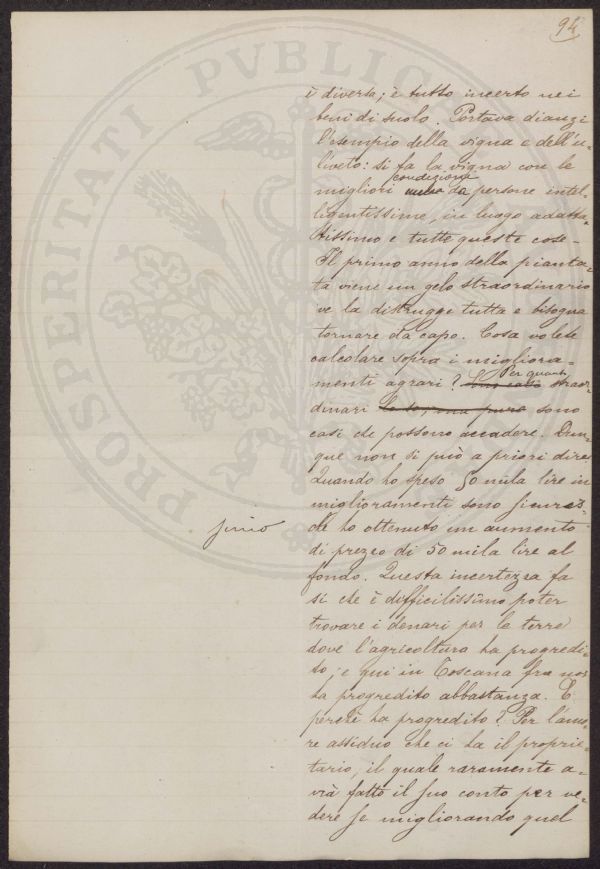 94
è diversa; è tutto incerto nei
beni di suolo. Portava dianzi
l'esempio della vigna e dell'u-
liveto: si fa la vigna con le
condizioni
migliori da persone intel-
ligentissime, in luogo adatta-
tissimo e tutte queste cose -
Il primo anno della pianta-
ta viene un gelo straordinario
ve la distrugge tutta e bisogna
tornare da capo. Cosa volete
calcolare sopra i migliora-
Per quanto
menti agrari? straor-
dinari le so, ma pure sono
casi che possono accadere. Dun-
que non si può a priori dire
Quando ho speso 50 mila lire in
miglioramenti sono sicuro
che ho ottenuto un aumento
sino
di prezzo di 50 mila lire al
fondo. Questa incertezza fa
sì che è difficilissimo poter
trovare i denari per le terre
dove l'agricoltura ha progredi-
to; e qui in Toscana fra noi
ha progredito abbastanza. E
perchè ha progredito? Per l'amo-
re assiduo che ci ha il proprie-
tario, il quale raramente a-
vrà fatto il suo conto per ve-
dere se migliorando quel
PROSPERITATI PVBLICAE